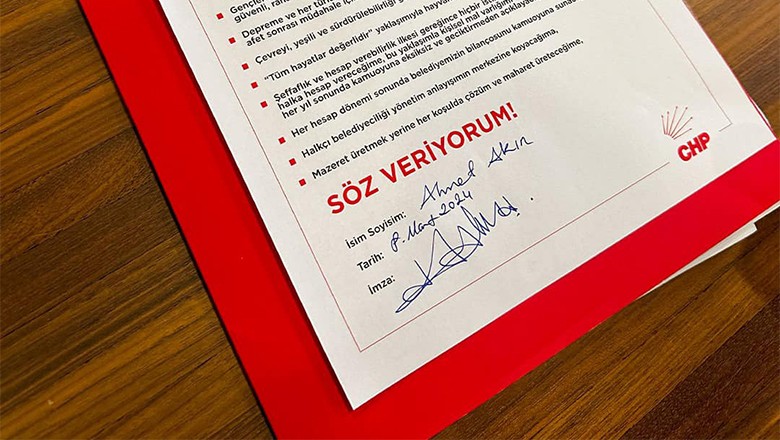 Gençler
güvenli,
Depreme ve her türlü
afet sonrası müdahale için
Çevreyi, yeşili ve sürdürülebilirliği
"Tüm hayatlar değerlidir" yaklaşımıyla hayvan
Şeffaflık ve hesap verebilirlik ilkesi gereğince hiçbir
halka hesap vereceğime, bu yaklaşımla kişisel mal varlığımı
her yıl sonunda kamuoyuna eksiksiz ve geciktirmeden açıklayacağıma
Her hesap dönemi sonunda belediyemizin bilançosunu kamuoyuna
Halkçı belediyeciliği yönetim anlayışının merkezine koyacağıma,
Mazeret üretmek yerine her koşulda çözüm ve maharet üreteceğime,
SÖZ VERİYORUM!
İsim Soyisim: Ahmet Akın
Tarih: 8. Mart 2024
İmza:
CHP